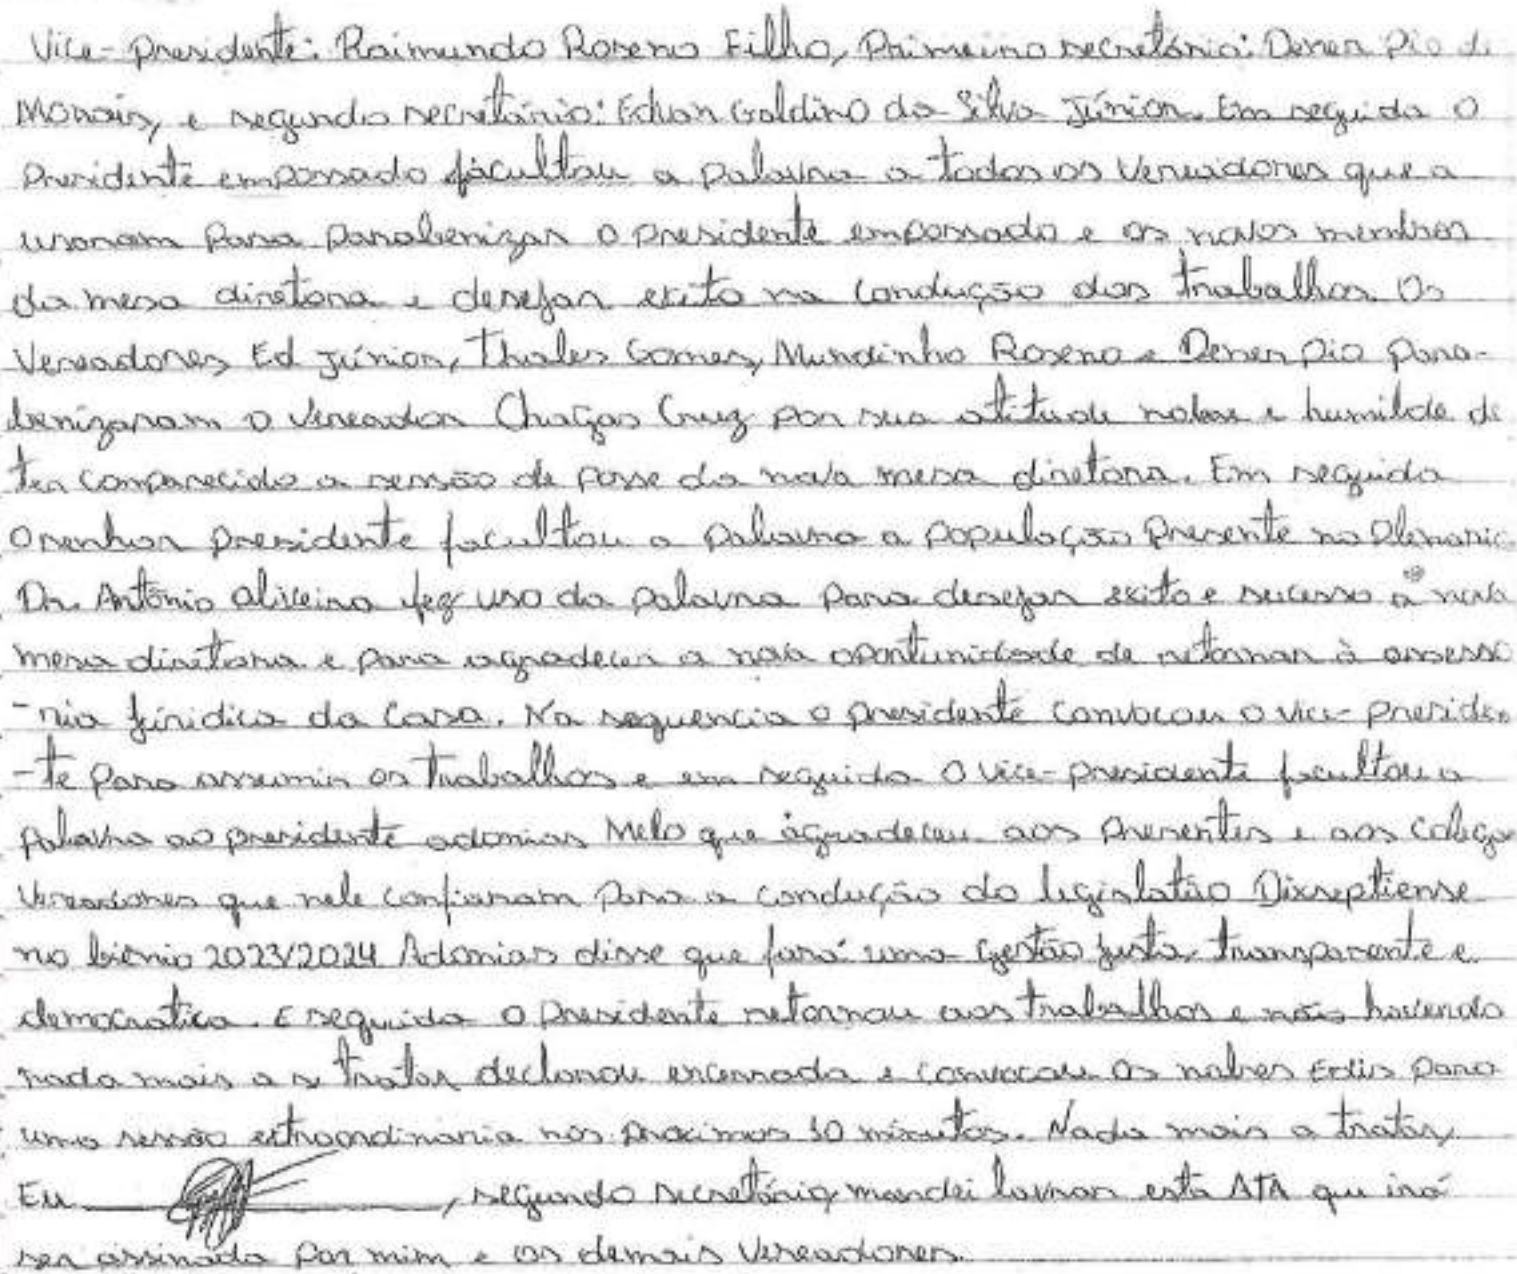 Vice-presidente: Raimundo Roseno Filho, Primeiro secretário: Dener Pio de
Morais, e segundo secretário: Edvan Galdino da Silva Júnior. Em seguida o
Presidente empossado facultou a palavra a todos os Vereadores que a
usaram para parabenizar o presidente empossado e os novos membros
da mesa diretora e desejar exito na condução dos trabalhos. Os
Vereadores Ed Júnior, Thales Gomes, Mundinho Roseno e Dener Pio para-
benizaram o Vereador Chagas Cruz por sua atitude nobre e humilde de
ter comparecido a sessão de posse da nova mesa diretora. Em seguida
o senhor presidente facultou a palavra a população presente no Plenario
Dr. Antônio Oliveira fez uso da palavra para desejar exito e sucesso a nova
mesa diretora e para agradecer a nova oportunidade de retornar à assesso
-ria jurídica da Casa. Na sequencia o presidente convocou o vice-presiden
-te para assumir os trabalhos e em seguida o vice-presidente facultou a
palavra ao presidente adonias Melo que agradeceu aos presentes e aos colegas
Vereadores que nele confiaram para a condução do legislativo Dixseptiense
no biênio 2023/2024 Adonias disse que fará uma gestão justa, transparente e
democratica. E seguida o Presidente retornou aos trabalhos e não havendo
nada mais a se tratar declarou encerrada e convocou os nobres Edis para
uma sessão extraordinaria nos proximos 10 minutos. Nada mais a tratar,
Eu , segundo secretário, mandei lavrar esta ATA que irá
ser assinada por mim e os demais Vereadores.